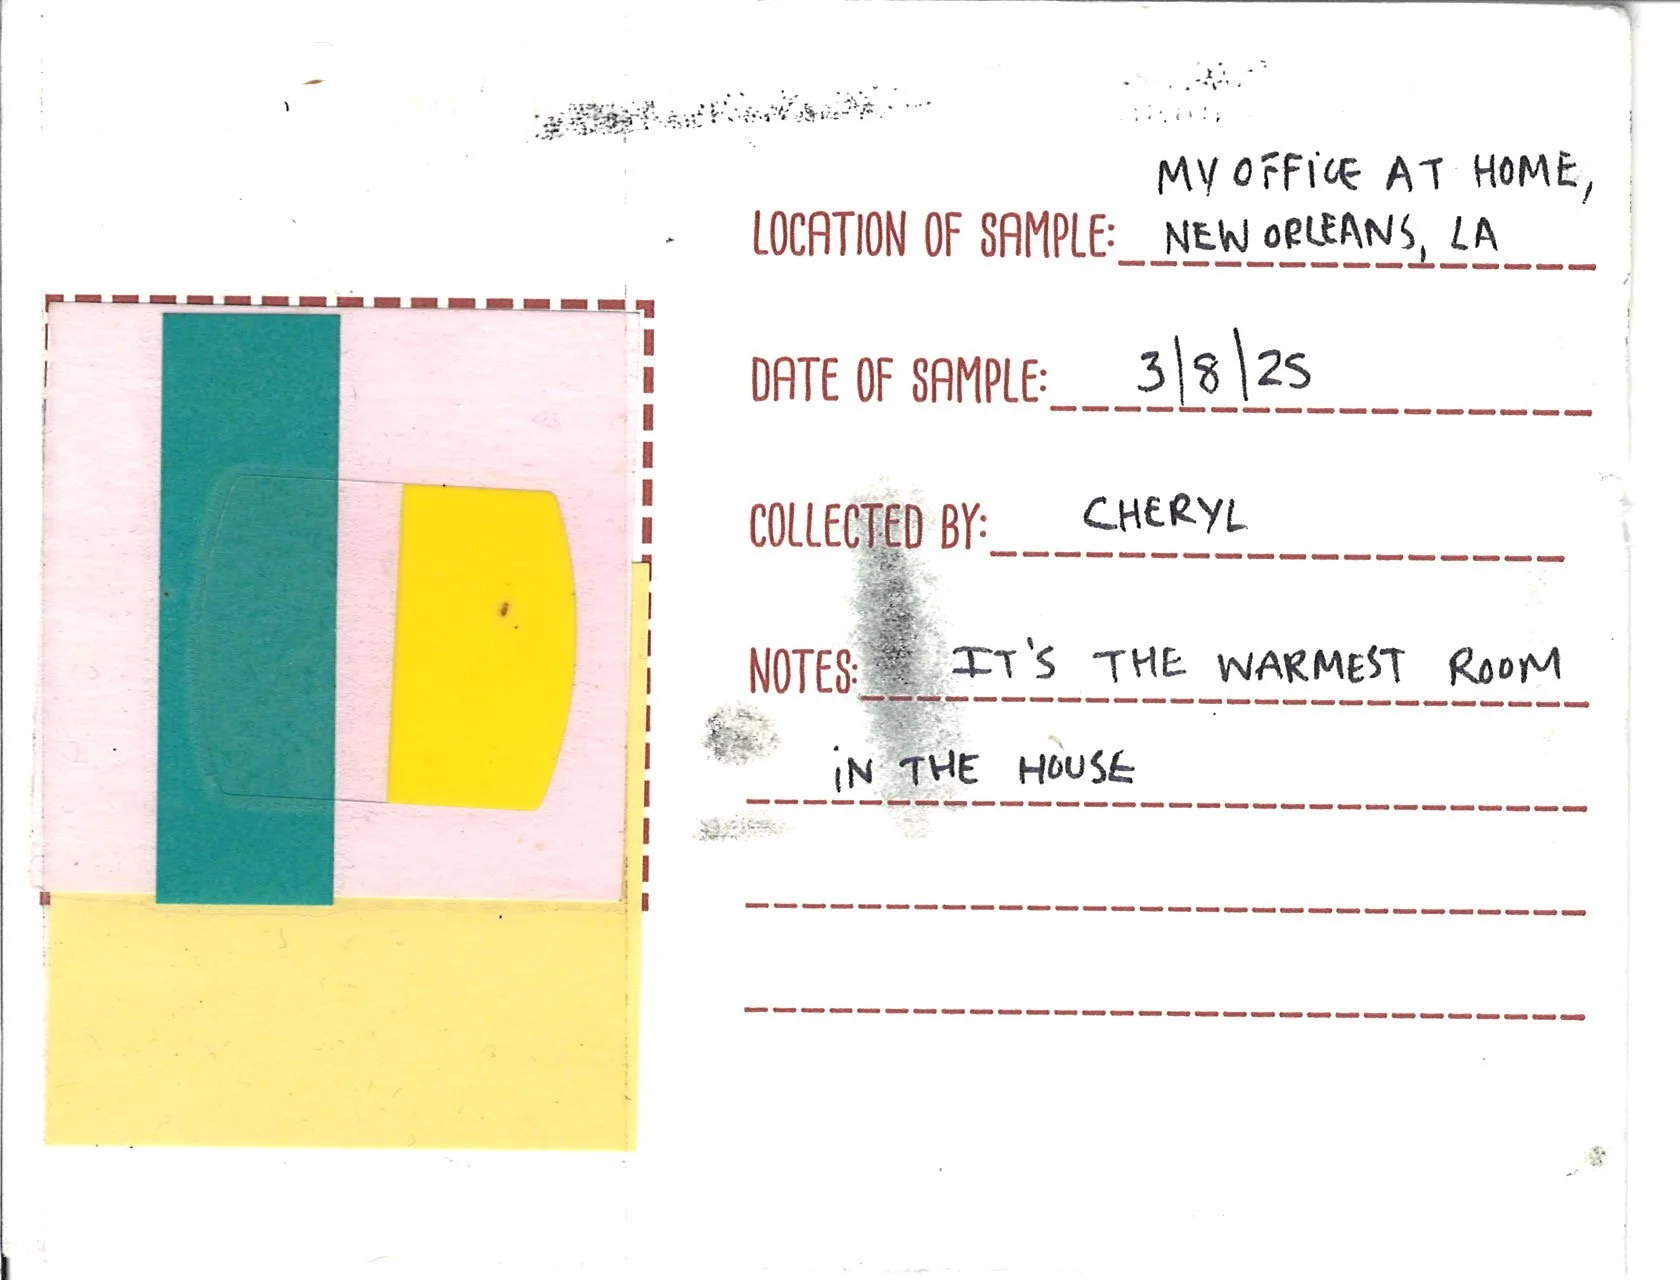 MY OFFICE AT HOME,
LOCATION OF SAMPLE: NEW ORLEANS, LA
DATE OF SAMPLE: 3/8/25
COLLECTED BY: CHERYL
NOTES: IT'S THE WARMEST ROOM
IN THE HOUSE